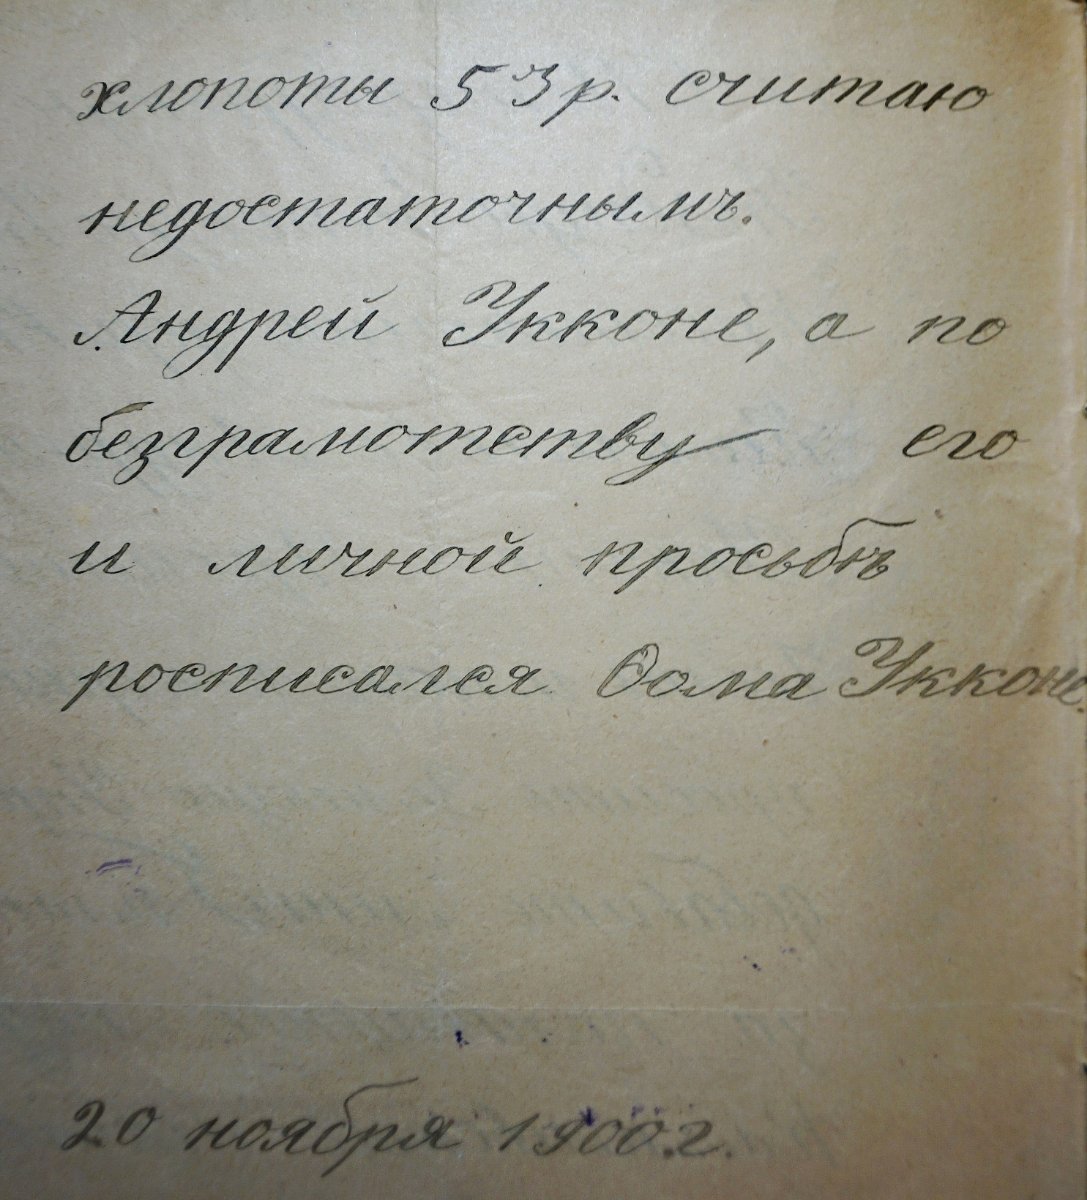 хлопоты 53 р. считаю
недостаточнымъ.
Андрей Укконе, а по
безграмотству его
и личной просьбѣ
росписался Ѳома Укконе.
20 ноября 1900.г.